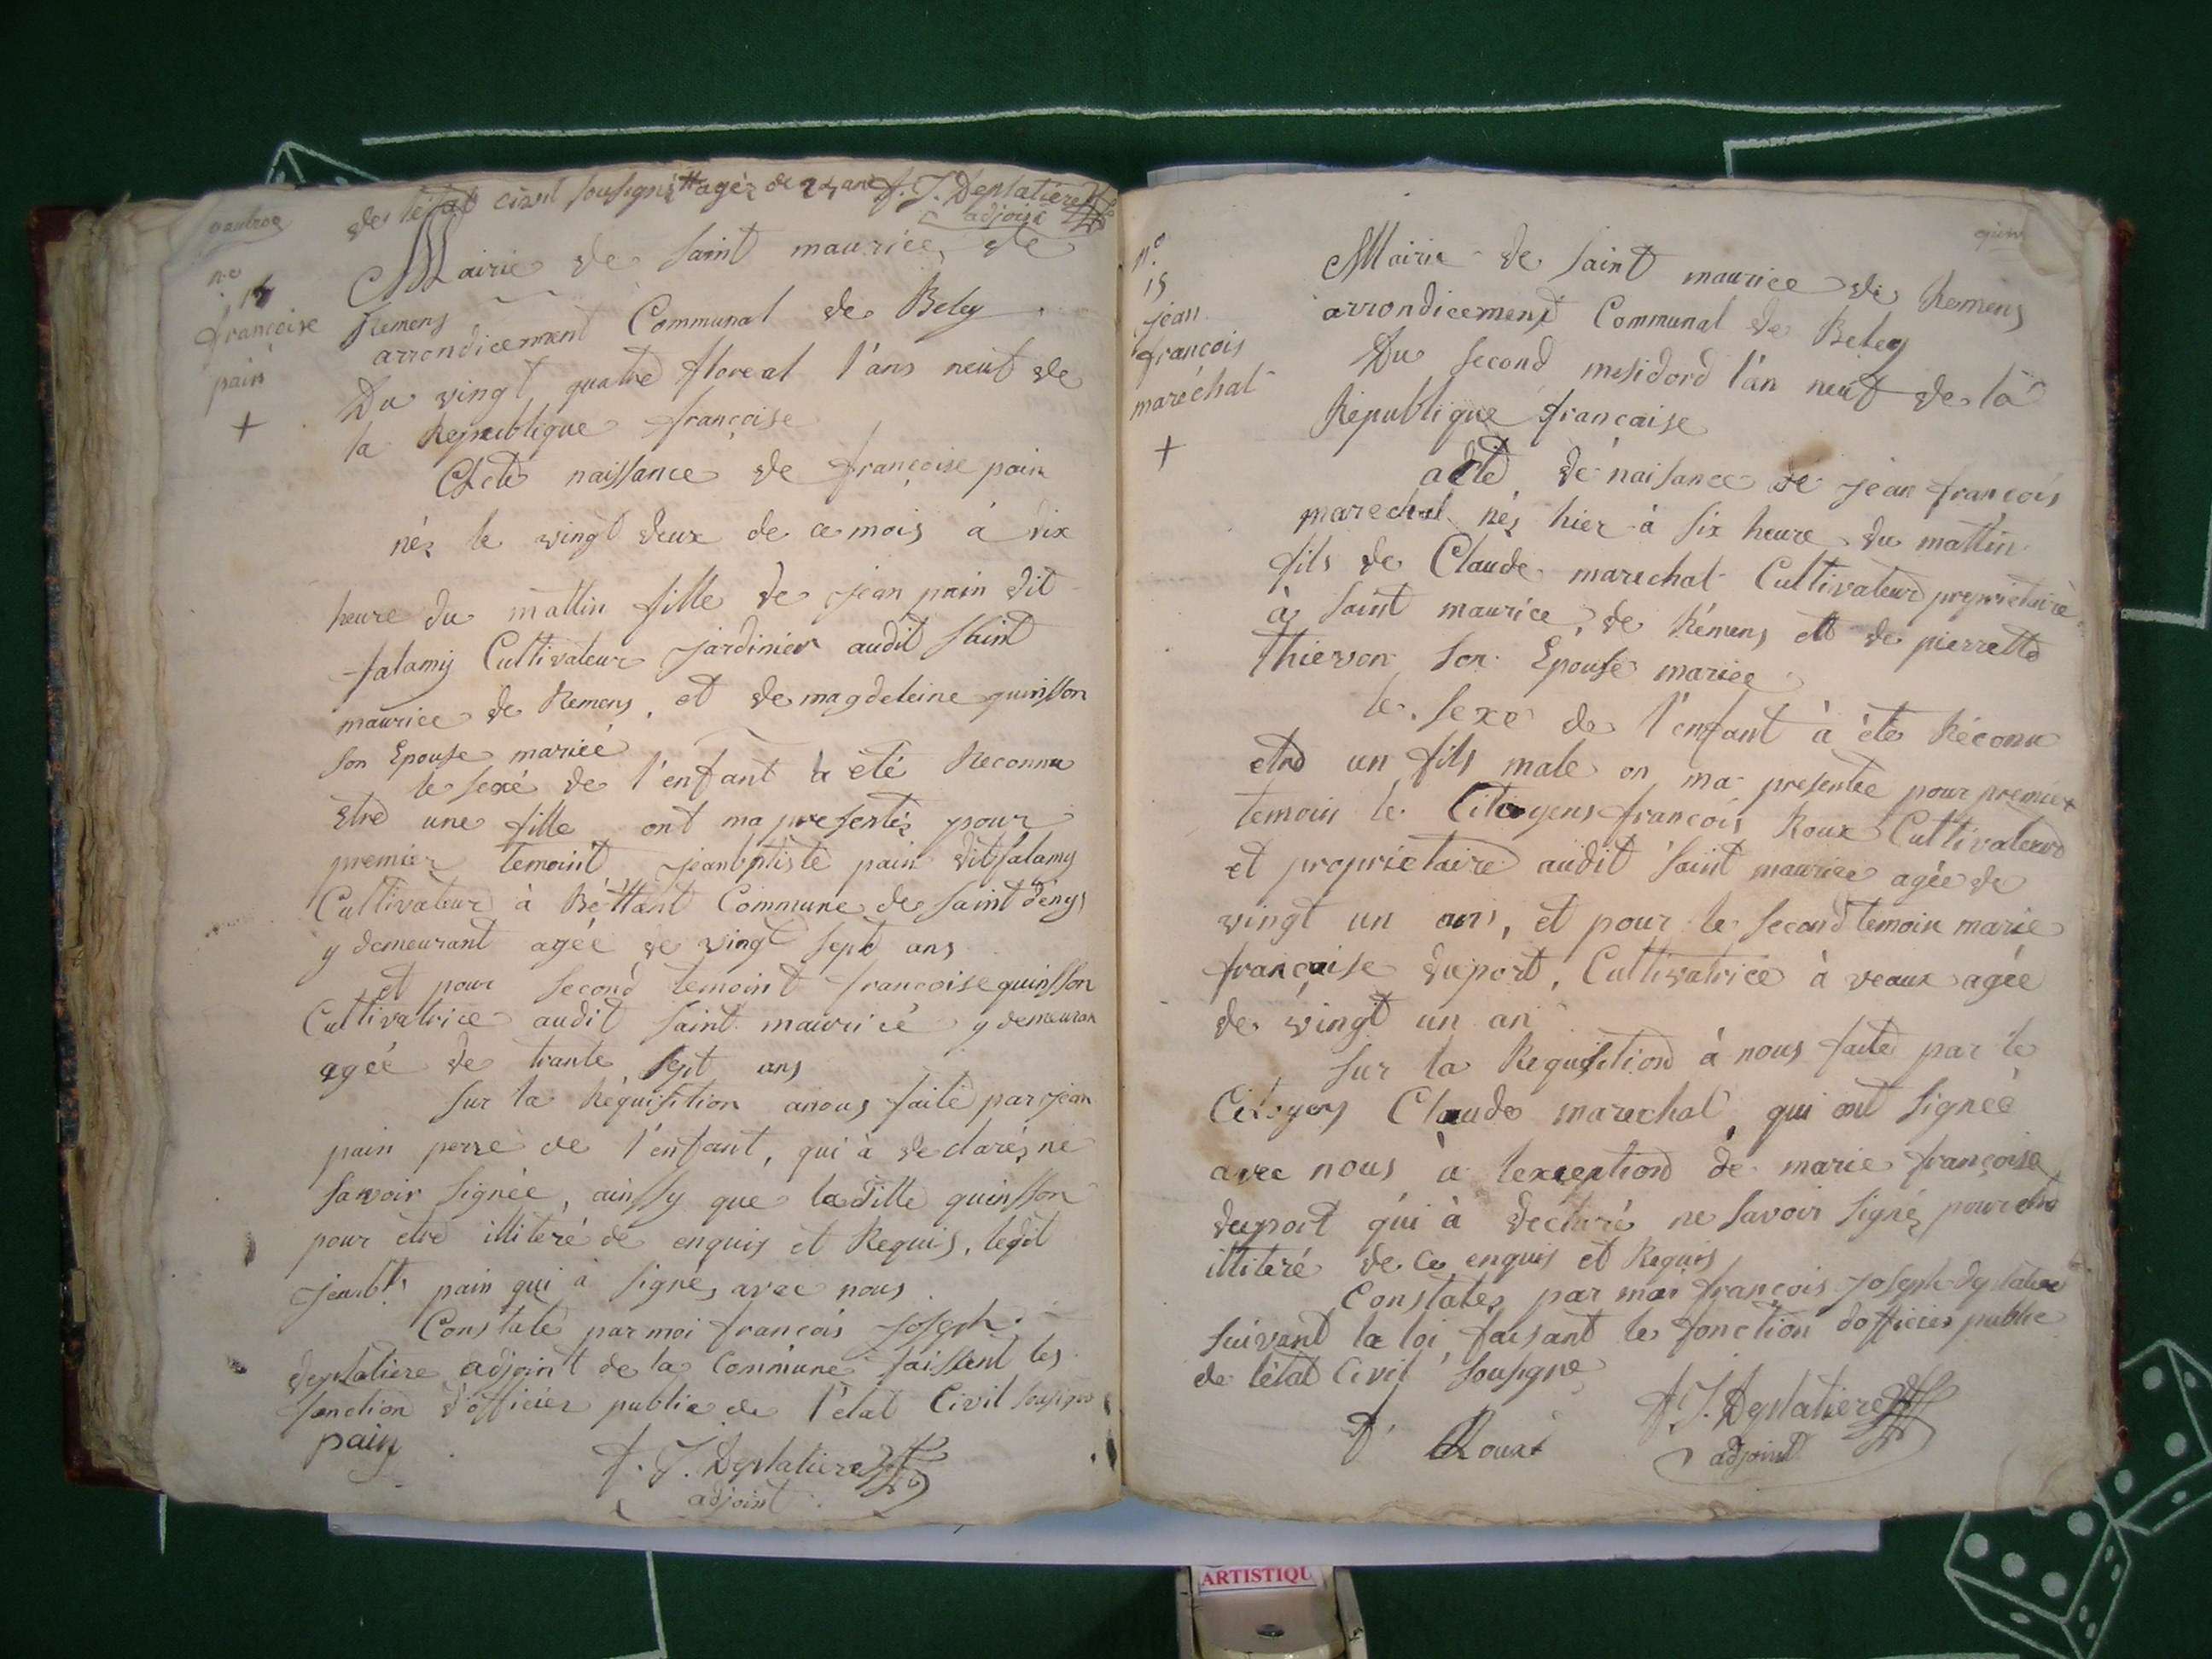 de létat civil sousigné, #agéz de 24 ans F. J. Deplatiere
adjoint
n.o
14
françoise
pain
+
Mairie de saint maurice de
Remens
arrondicement Communal de Beley
Du vingt quatre floreal l'ans neuf de
la Republique françoise
Acte naissance de françoise pain
néz le vingt deux de ce mois à dix
heure du mattin fille de jean pain dit
falamy Cultivateur jardinier audit saint
maurice de Remens, et de magdeleine quinsson
son Epouse mariéé
le sexé de l'enfant à eté Reconnu
Etre une fille ont ma presentéz pour
premier temoint jeanbptiste pain dit falamy
Cultivateur à Béttant Commune de saint dénys
y demeurant agéé de vingt sept ans
et pour second temoint francoise quinsson
Cultivatrice audit saint maurice y demeuran
agéé de trante sept ans
sur la Réquisition anous faite par jean
pain perre de l'enfant, qui à declaréz ne
savoir signée, ainssy que ladille quinsson
pour etre illiteré de enquis et Requis, ledit
jeanbts pain qui à signéz avec nous
Constaté par moi francois Joseph
deplatiere adjoint de la commune faissent les
fonction d'officier public de l'état Civil sousigné
pain
F. J. Deplatiere
adjoint
n.o
15
jean
françois
maréchal
+
Mairie de saint maurice de Remens
arrondicement Communal de Beley
Du second mesidord l'an neuf de la
Republique francaise
acte de naisance de jean françois
marechal néz hier à six heure du mattin
fils de Claude marechal Cultivateur proprietairè
à saint maurice de Rémens et de pierrette
thievon son Epouse mariee
le sexe de l'enfant à été Réconu
etre un fils male on ma presentée pour premier
temoin le Citoyens françois Roux Cultivateur
et proprietaire audit saint maurice agée de
vingt un ans, et pour le second temoin marie
françoise duport, Cultivatrice à veaux agée
de vingt un an
sur la Requisition à nous faite par le
Citoyens Claude marechal, qui ont signéé
avec nous à lexception de marie françoise
duport qui à declaré ne savoir signéz pour etre
illiteré de ce enquis et Requis
Constatéz par moi françois Joseph deplatiere
suivant la loi faisant le fonction dofficier public
de létat Civil sousigné
F. Roux
F. J. Deplatiere
adjoint
ARTISTIQU